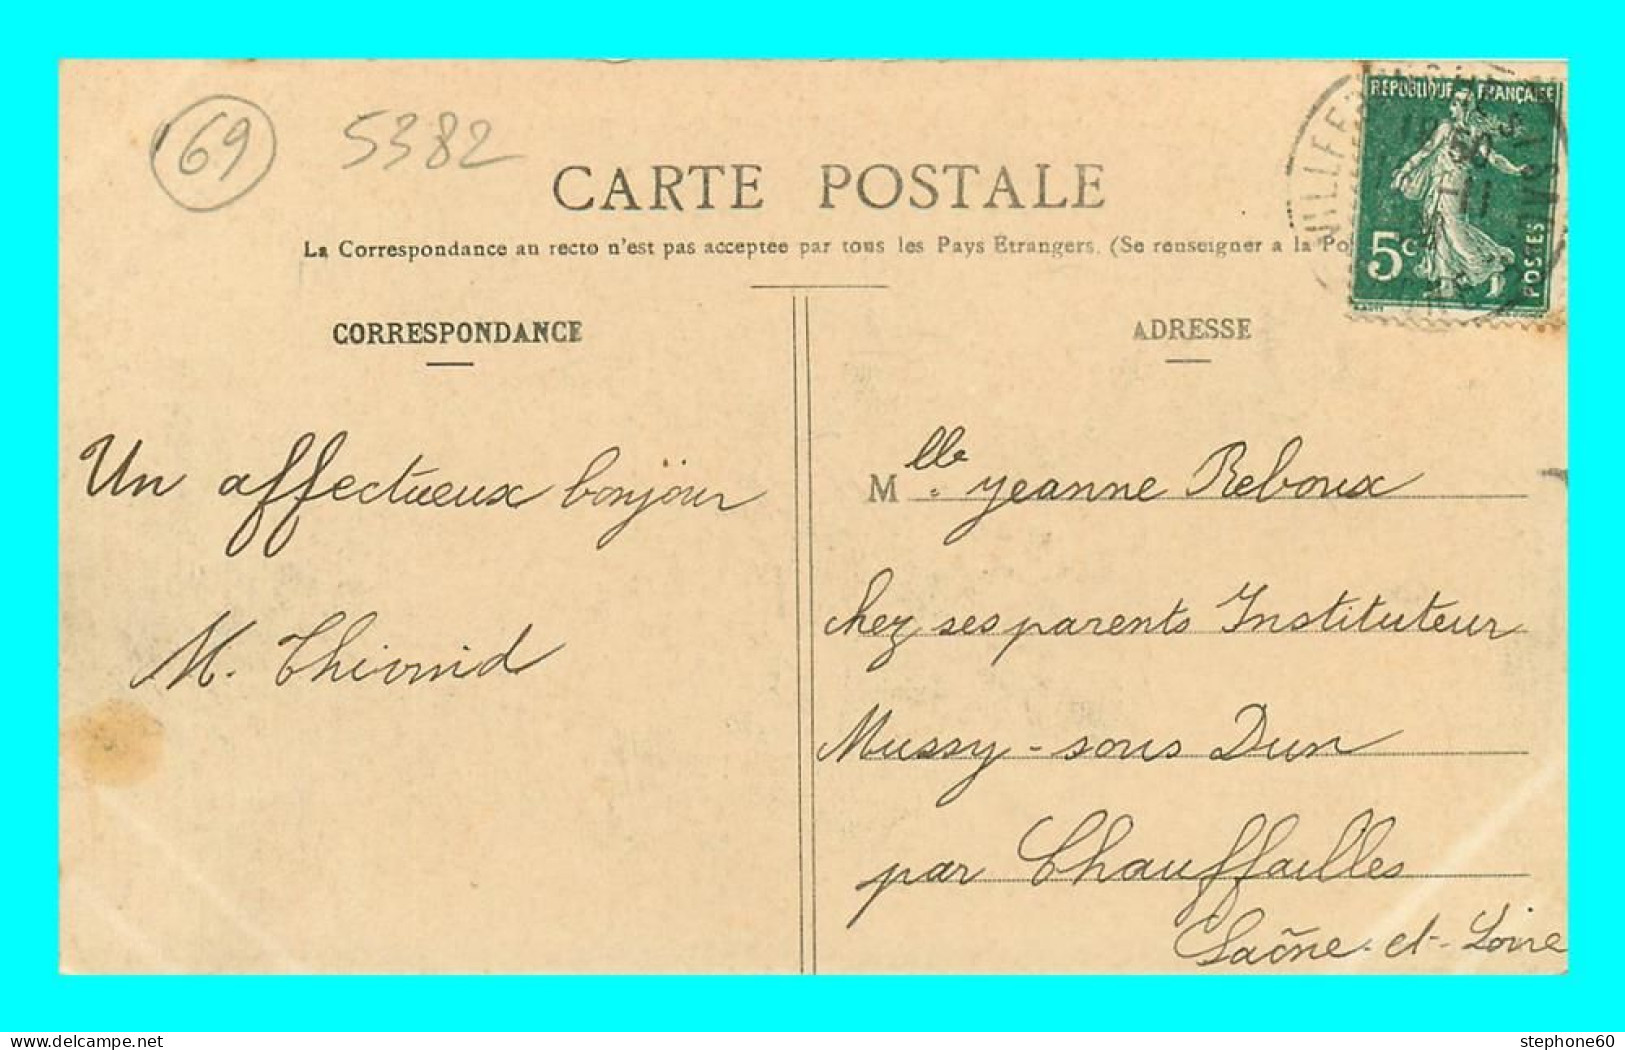 69
5382
CARTE POSTALE
La Correspondance au recto n'est pas acceptée par tous les Pays Etrangers. (Se renseigner a la Po
REPUBLIQUE FRANÇAISE
5c
POSTES
CORRESPONDANCE
ADRESSE
Un affectueux bonjour
M. Thionnid
Mlle Jeanne Reboux
chez ses parents Instituteur
Mussy-sous Dun
par Chauffailles
Saône-et-Loire
stephone60